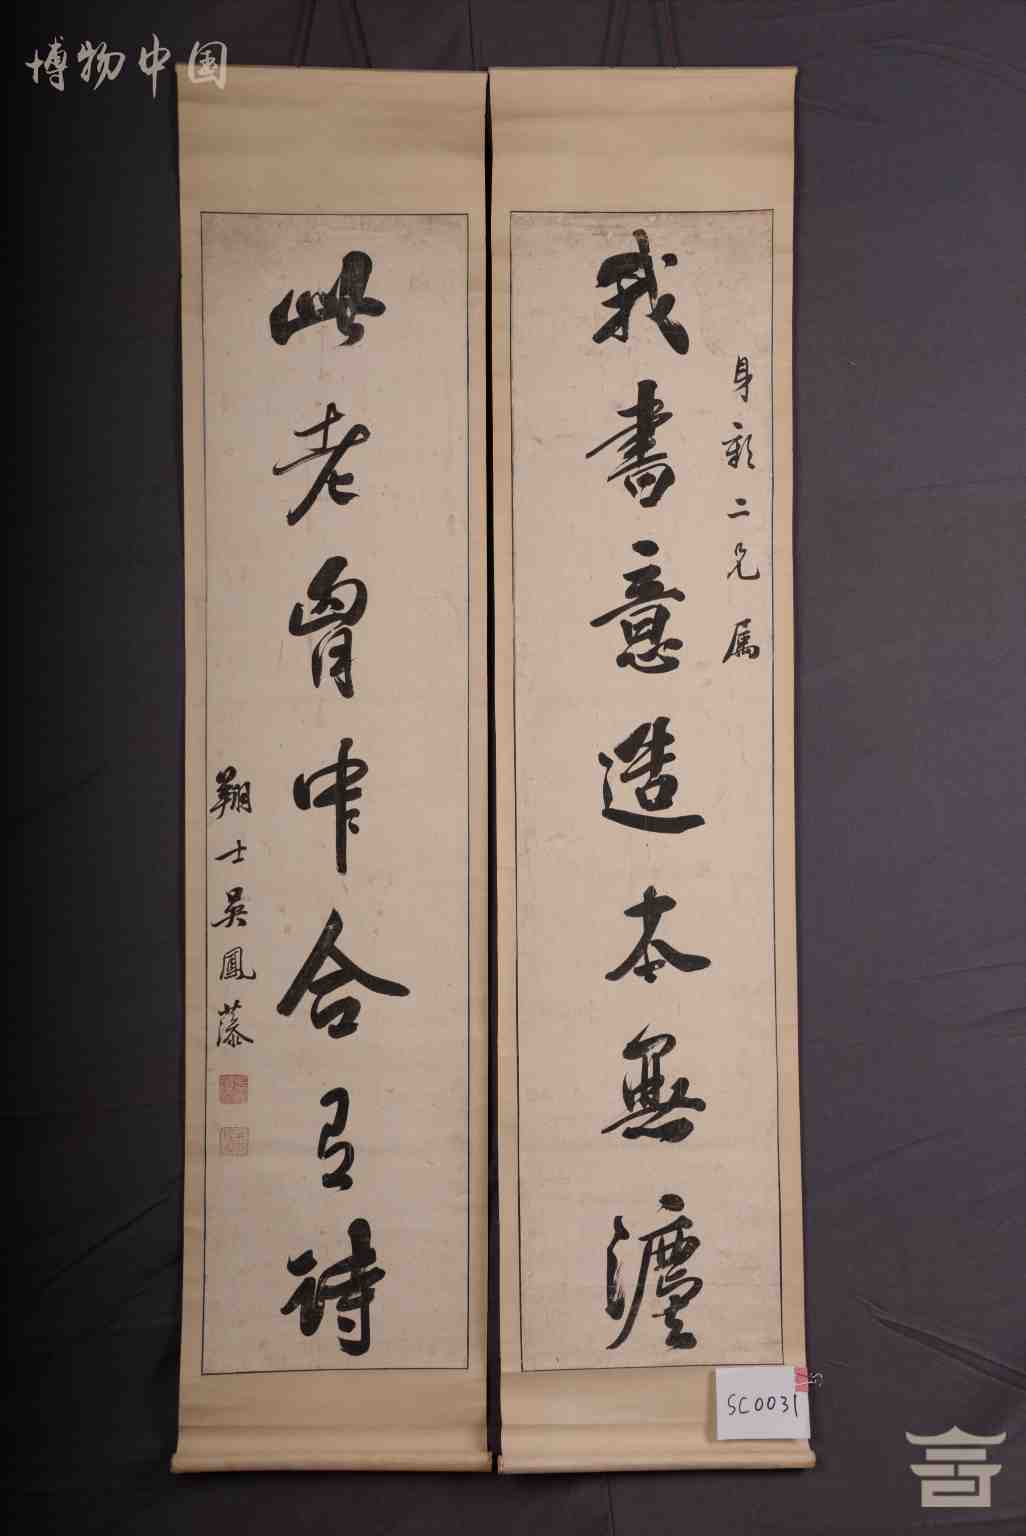 博物中国
身彰二兄属
我書意造本無灋
此老胷中合有詩
翔士吳鳳藻
SC0031